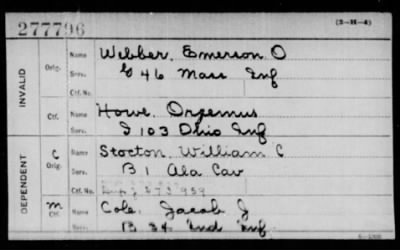 277796
(3-H-4)
INVALID
Orig.
Name Webber, Emerson O
Serv. G 46 Mass Inf
Ctf. No.
Ctf.
Name Howe, Orpemus
Serv. I 103 Ohio Inf
DEPENDENT
C
Orig.
Name Stocton, William C
Serv. B 1 Ala Cav
Ctf. No.
M
Ctf.
Name Cole, Jacob J
Serv. B 34 Ind Inf